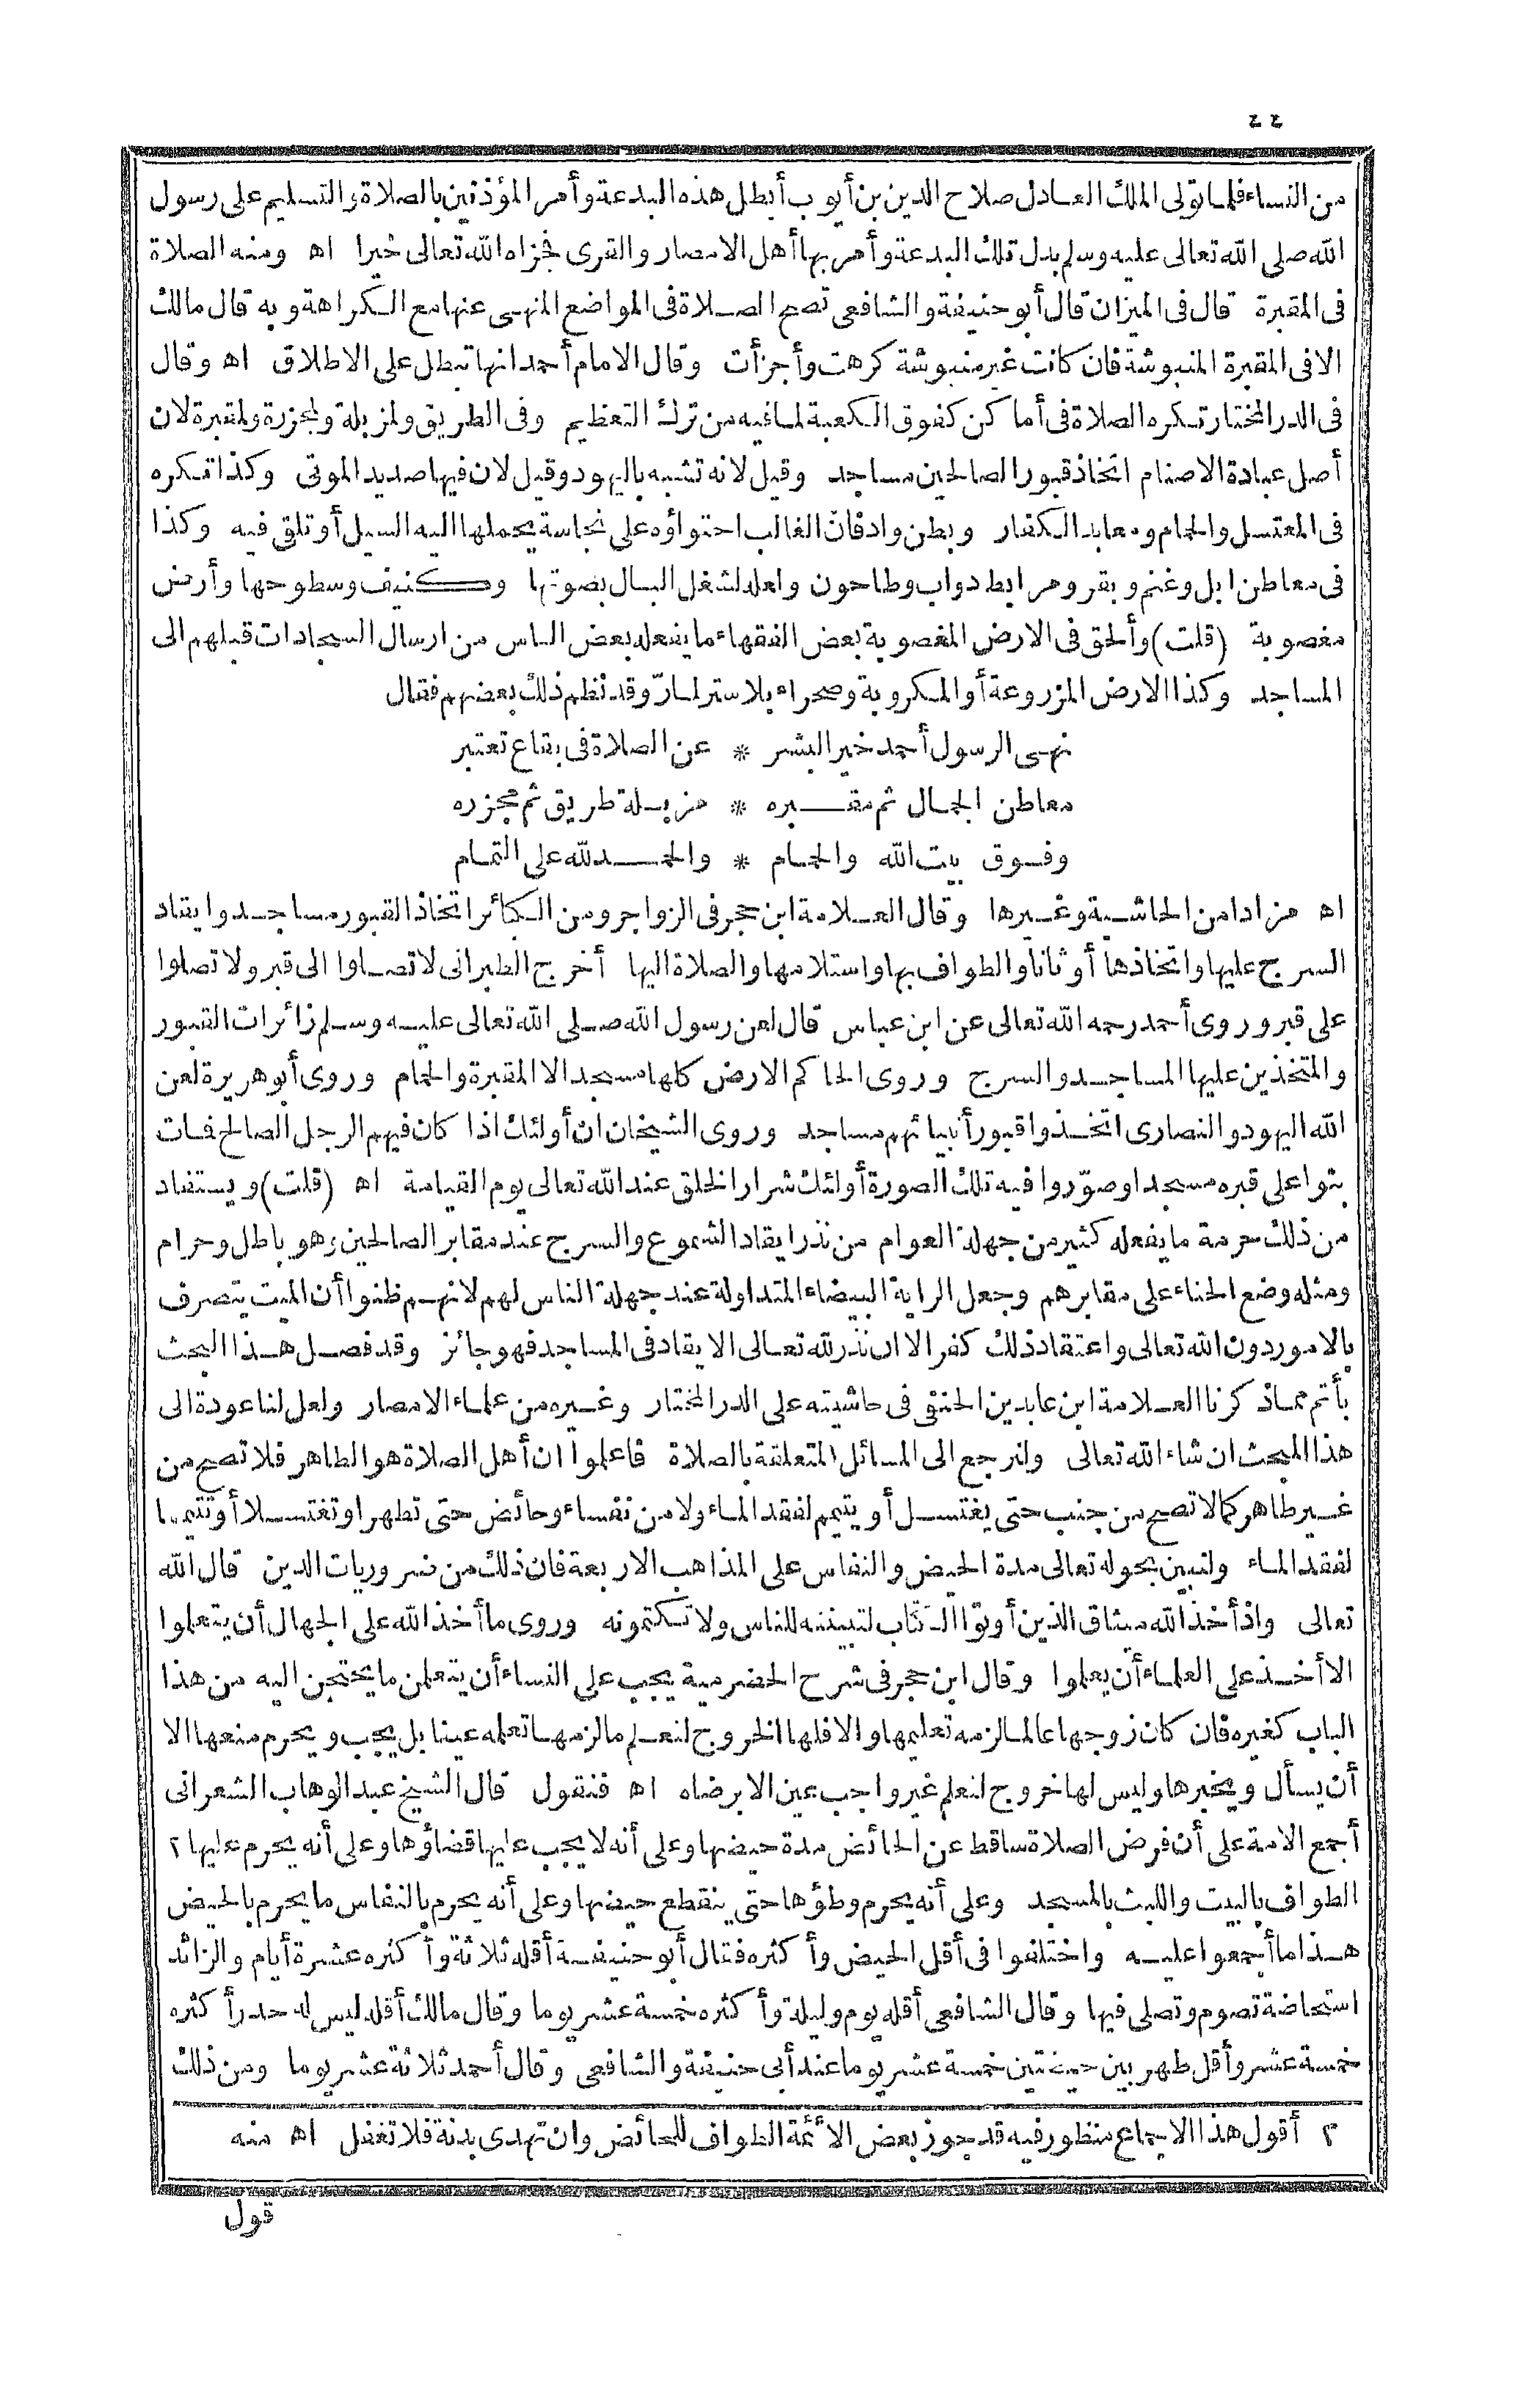 ٢٢
من النساء فلما تولى الملك العادل صلاح الدين بن أيوب أبطل هذه البدعة وأمر المؤذنين بالصلاة والتسليم على رسول
الله صلى الله تعالى عليه وسلم بدل تلك البدعة وأمر بها أهل الامصار والقرى فجزاه الله تعالى خيرا اه ومنه الصلاة
فى المقبرة قال فى الميزان قال أبو حنيفة والشافعى تصح الصلاة فى المواضع المنهى عنها مع الكراهة وبه قال مالك
الا فى المقبرة المنبوشة فان كانت غير منبوشة كرهت وأجزأت وقال الامام أحمد انها تبطل على الاطلاق اه وقال
فى الدر المختار تكره الصلاة فى أما كن كفوق الكعبة لما فيه من ترك التعظيم وفى الطريق ولمزبلة ولمجزرة ولمقبرة لان
أصل عبادة الاصنام اتخاذ قبور الصالحين مساجد وقيل لانه تشبه باليهود وقيل لان فيها صديد الموتى وكذا تكره
فى المغتسل والحمام ومعابد الكفار وبطن واد فان الغالب احتواؤه على نجاسة يحملها اليه السيل أو تلقى فيه وكذا
فى معاطن ابل وغنم وبقر ومرابط دواب وطاحون ولعله لشغل البال بصوتها وكنيف وسطوحها وأرض
مغصوبة (قلت) وألحق فى الارض المغصوبة بعض الفقهاء ما يفعله بعض الناس من ارسال السجادات قبلهم الى
المساجد وكذا الارض المزروعة أو المكروبة وصحراء بلا ستر لمارّ وقد نظم ذلك بعضهم فقال
نهى الرسول أحمد خير البشر * عن الصلاة فى بقاع تعتبر
معاطن الجمال ثم مقبره * مزبلة طريق ثم مجزره
وفوق بيت الله والحمام * والحمد لله على التمام
اه مزادا من الحاشية وغيرها وقال العلامة ابن حجر فى الزواجر ومن الكبائر اتخاذ القبور مساجد وايقاد
السرج عليها واتخاذها أوثانا والطواف بها واستلامها والصلاة اليها أخرج الطبرانى لا تصلوا الى قبر ولا تصلوا
على قبر وروى أحمد رحمه الله تعالى عن ابن عباس قال لعن رسول الله صلى الله تعالى عليه وسلم زائرات القبور
والمتخذين عليها المساجد والسرج وروى الحاكم الارض كلها مسجد الا المقبرة والحمام وروى أبو هريرة لعن
الله اليهود والنصارى اتخذوا قبور أنبيائهم مساجد وروى الشيخان ان أولئك اذا كان فيهم الرجل الصالح فمات
بنوا على قبره مسجدا وصوّروا فيه تلك الصورة أولئك شرار الخلق عند الله تعالى يوم القيامة اه (قلت) ويستفاد
من ذلك حرمة ما يفعله كثير من جهلة العوام من نذر ايقاد الشموع والسرج عند مقابر الصالحين وهو باطل وحرام
ومثله وضع الحناء على مقابرهم وجعل الراية البيضاء المتداولة عند جهلة الناس لهم لانهم ظنوا أن الميت يتصرف
بالامور دون الله تعالى واعتقاد ذلك كفر الا ان نذر لله تعالى الايقاد فى المساجد فهو جائز وقد فصل هذا البحث
بأتم مما ذكرنا العلامة ابن عابدين الحنفى فى حاشيته على الدر المختار وغيره من علماء الامصار ولعل لنا عودة الى
هذا المبحث ان شاء الله تعالى ولنرجع الى المسائل المتعلقة بالصلاة فاعلموا ان أهل الصلاة هو الطاهر فلا تصح من
غير طاهر كما لا تصح من جنب حتى يغتسل أو يتيمم لفقد الماء ولا من نفساء وحائض حتى تطهر او تغتسلا أو تتيمما
لفقد الماء ولنبين بحوله تعالى مدة الحيض والنفاس على المذاهب الاربعة فان ذلك من ضروريات الدين قال الله
تعالى واذ أخذ الله ميثاق الذين أوتوا الكتاب لتبيننه للناس ولا تكتمونه وروى ما أخذ الله على الجهال أن يتعلموا
الا أخذ على العلماء أن يعلموا وقال ابن حجر فى شرح الحضرمية يجب على النساء أن يتعلمن ما يحتجن اليه من هذا
الباب كغيره فان كان زوجها عالما لزمه تعليمها والا فلها الخروج لتعلم ما لزمها تعلمه عينا بل يجب ويحرم منعها الا
أن يسأل ويخبرها وليس لها خروج لتعلم غير واجب عين الا برضاه اه فنقول قال الشيخ عبد الوهاب الشعرانى
أجمع الامة على أن فرض الصلاة ساقط عن الحائض مدة حيضها وعلى أنه لا يجب عليها قضاؤها وعلى أنه يحرم عليها ٢
الطواف بالبيت واللبث بالمسجد وعلى أنه يحرم وطؤها حتى ينقطع حيضها وعلى أنه يحرم بالنفاس ما يحرم بالحيض
هذا ما أجمعوا عليه واختلفوا فى أقل الحيض وأكثره فقال أبو حنيفة أقله ثلاثة وأكثره عشرة أيام والزائد
استحاضة تصوم وتصلى فيها وقال الشافعى أقله يوم وليلة وأكثره خمسة عشر يوما وقال مالك أقله ليس له حد وأكثره
خمسة عشر وأقل طهر بين حيضتين خمسة عشر يوما عند أبى حنيفة والشافعى وقال أحمد ثلاثة عشر يوما ومن ذلك
٢ أقول هذا الاجماع منظور فيه قد جوز بعض الأئمة الطواف للحائض وان تهدى بدنة فلا تغفل اه منه
قول